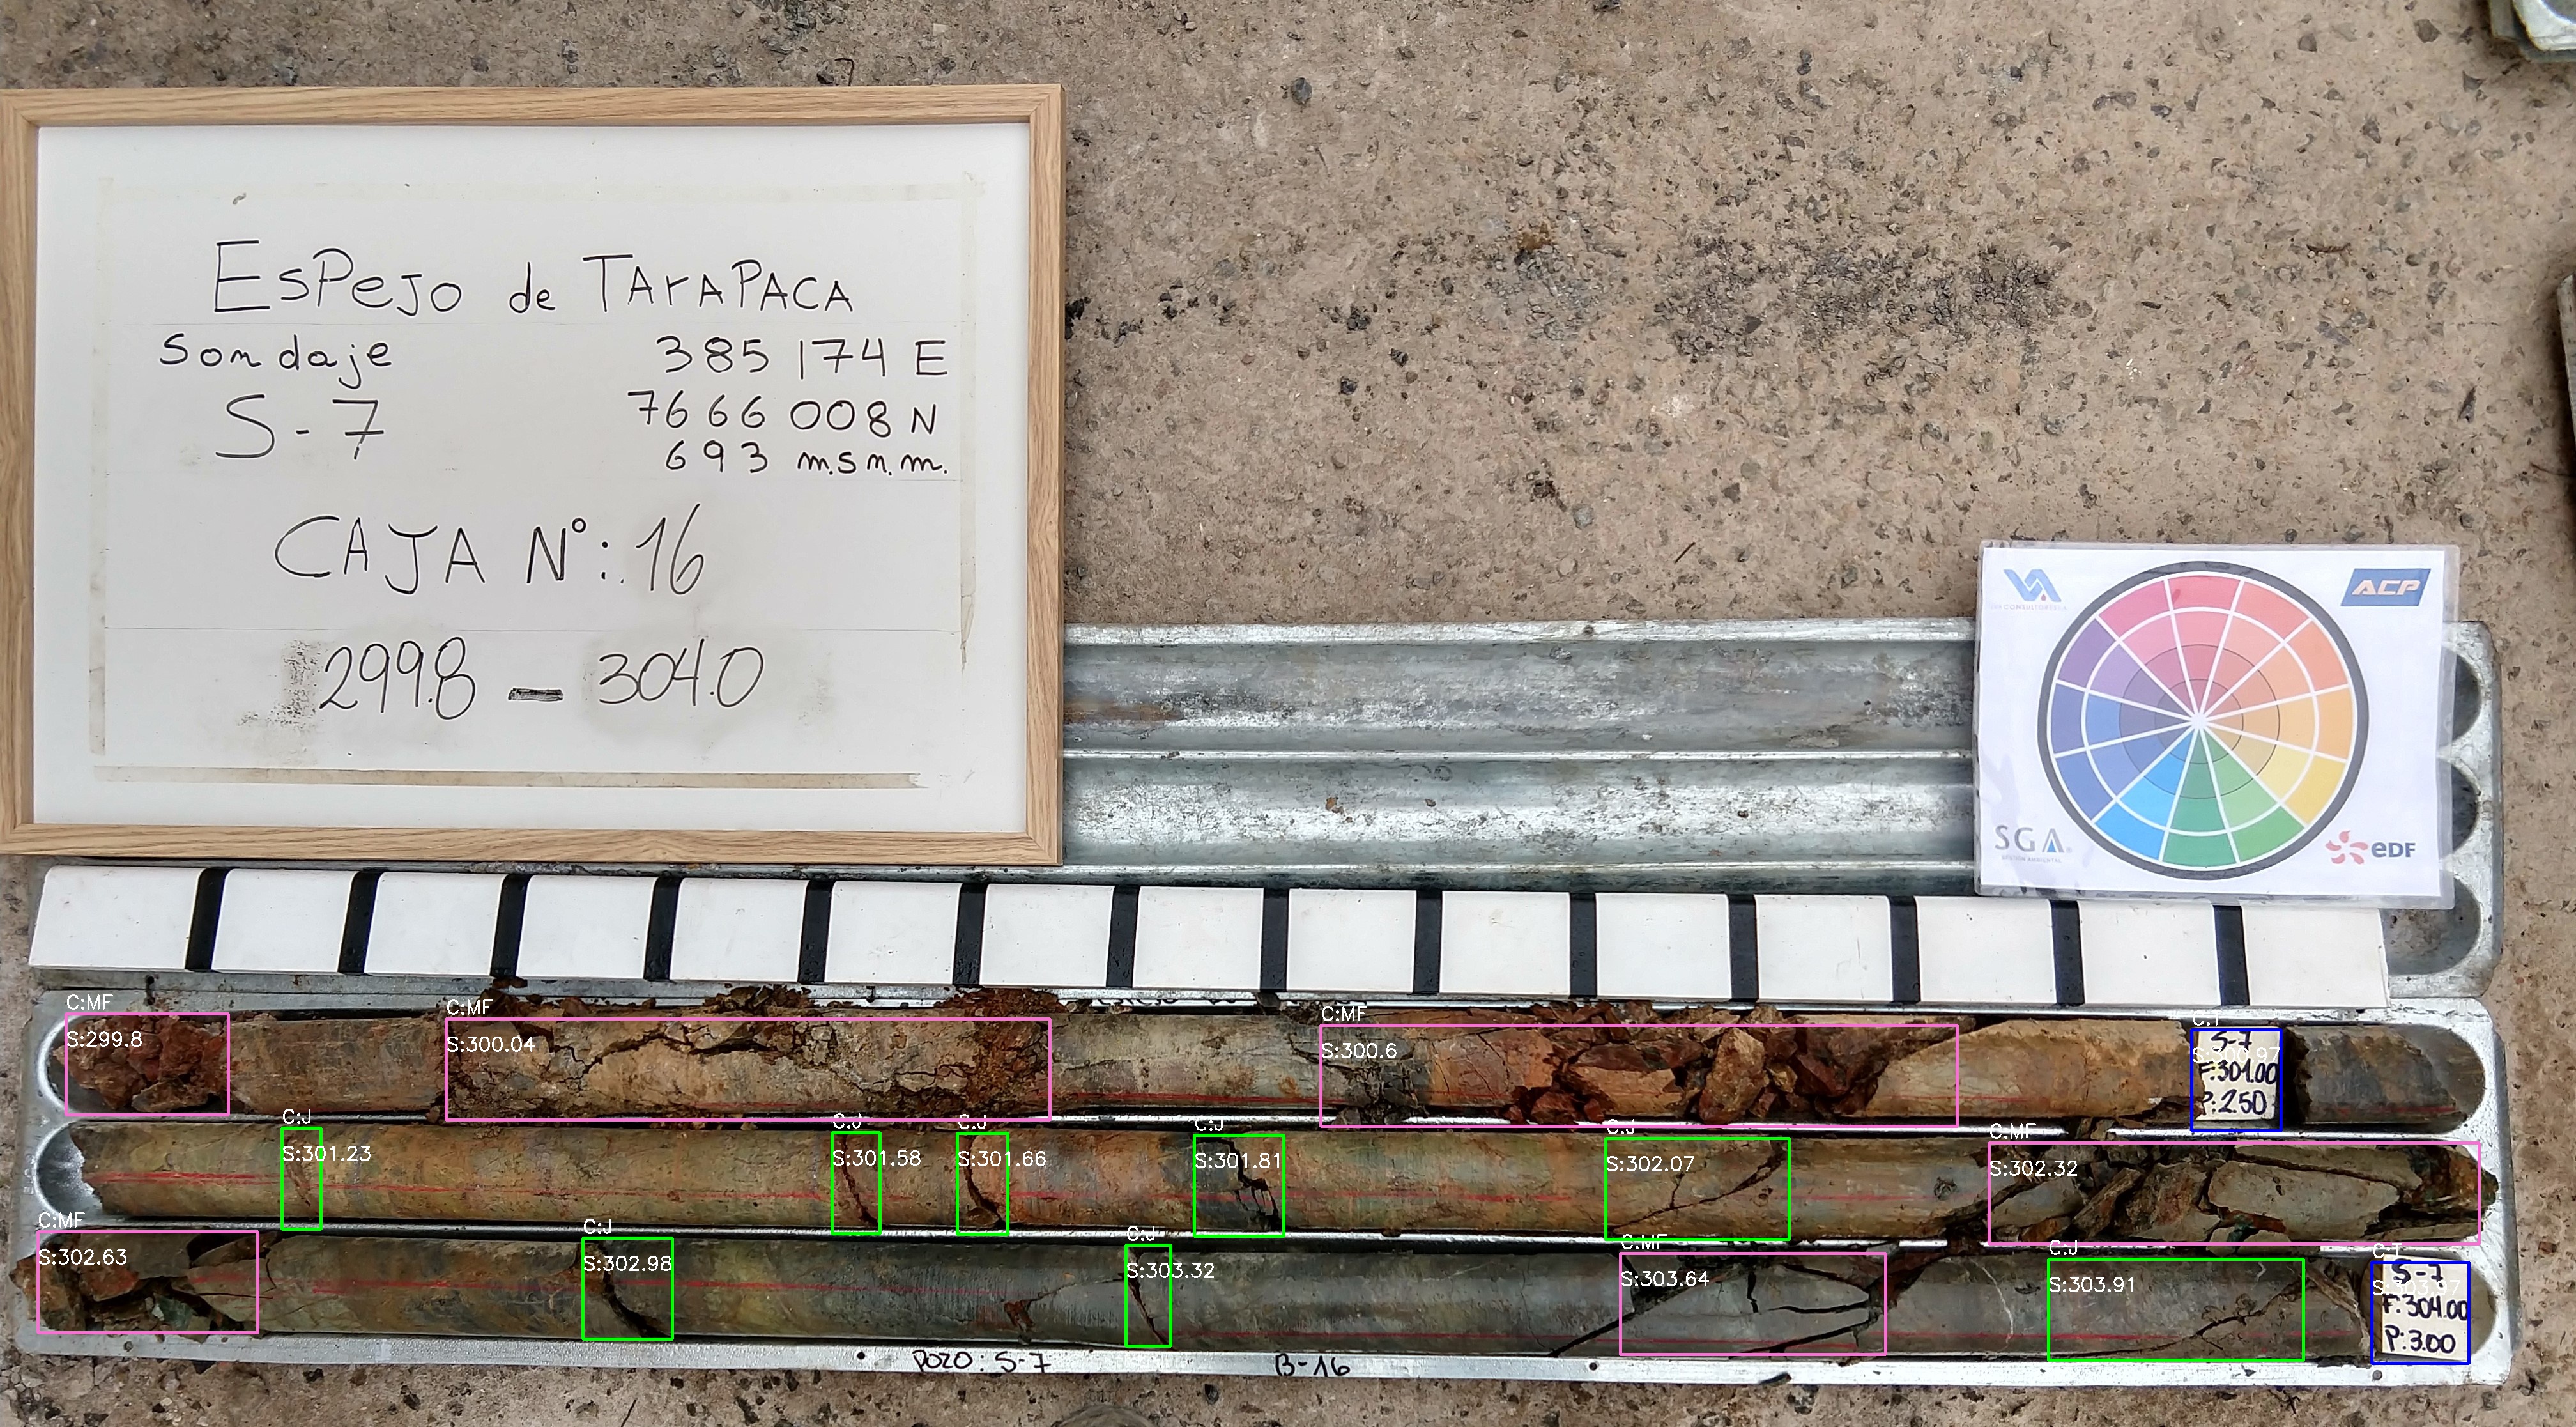 EsPeJo de TArAPACA
Sondaje 385 174 E
S-7 7666 008 N
693 m.s.n.m.
CAJA N°: 16
299.8 - 304.0
ACP
SGA
eDF
C:MF
S:299.8
C:MF
S:300.04
C:MF
S:300.6
S-7
F:301.00
P:2.50
C:J
S:301.23
C:J
S:301.58
C:J
S:301.66
C:J
S:301.81
C:J
S:302.07
C:MF
S:302.32
C:MF
S:302.63
C:J
S:302.98
C:J
S:303.32
C:MF
S:303.64
C:J
S:303.91
C:T
S-7
F:304.00
P:3.00
POZO: S-7 B-16